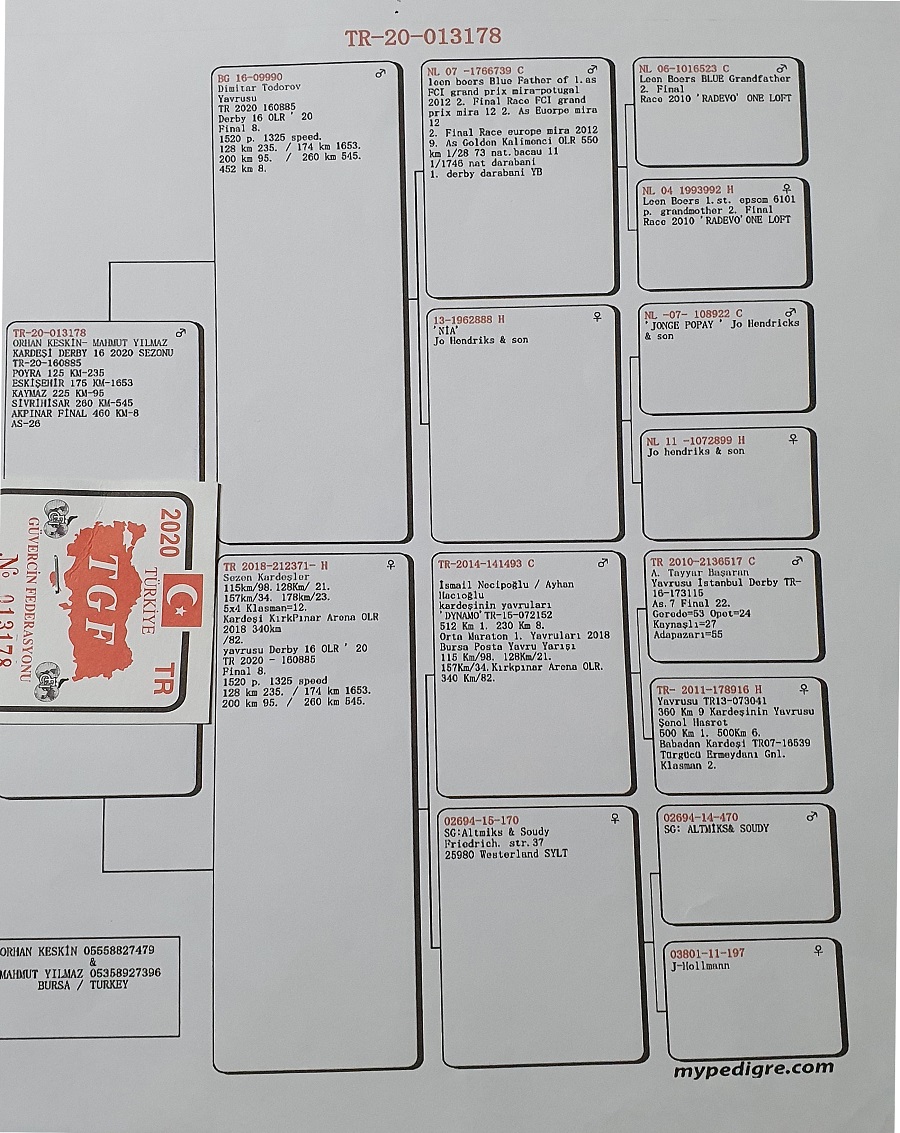 TR-20-013178
TR-20-013178
ORHAN KESKİN- MAHMUT YILMAZ
KARDEŞİ DERBY 16 2020 SEZONU
TR-20-160885
POYRA 125 KM-235
ESKİŞEHİR 175 KM-1653
KAYMAZ 225 KM-95
SİVRİHİSAR 260 KM-545
AKPINAR FİNAL 460 KM-8
AS-26
2020 TÜRKİYE TR
TGF
GÜVERCİN FEDERASYONU
No 013178
ORHAN KESKİN 05558827479
&
MAHMUT YILMAZ 05358927396
BURSA / TURKEY
BG 16-09990
Dimitar Todorov
Yavrusu
TR 2020 160885
Derby 16 OLR ' 20
Final 8.
1520 p. 1325 speed.
128 km 235. / 174 km 1653.
200 km 95. / 260 km 545.
452 km 8.
TR 2018-212371- H
Sezon Kardeşler
115km/98. 128Km/ 21.
157km/34. 178km/23.
5x4 Klasman=12.
Kardeşi KırkPınar Arena OLR
2018 340km
/82.
yavrusu Derby 16 OLR ' 20
TR 2020 - 160885
Final 8.
1520 p. 1325 speed
128 km 235. / 174 km 1653.
200 km 95. / 260 km 545.
NL 07 -1766739 C
leen boers Blue Father of 1.as
FCI grand prix mira-potugal
2012 2. Final Race FCI grand
prix mira 12 2. As Euorpe mira
12
2. Final Race europe mira 2012
9. As Goldon Kalimenci OLR 550
km 1/28 73 nat.bacau 11
1/1746 nat darabani
1. derby darabani YB
13-1962888 H
'NİA'
Jo Hendriks & son
TR-2014-141493 C
İsmail Necipoğlu / Ayhan
Hacıoğlu
kardeşinin yavruları
'DYNAMO'TR-15-072152
512 Km 1. 230 Km 8.
Orta Maraton 1. Yavruları 2018
Bursa Posta Yavru Yarışı
115 Km/98. 128Km/21.
157Km/34.Kırkpınar Arena OLR.
340 Km/82.
02694-15-170
SG:Altmiks & Soudy
Friedrich. str.37
25980 Westerland SYLT
NL 06-1016523 C
Leen Boers BLUE Grandfather
2. Final
Race 2010 'RADEVO' ONE LOFT
NL 04 1993992 H
Leen Boers 1.st. epsom 6101
p. grandmother 2. Final
Race 2010 'RADEVO'ONE LOFT
NL -07- 108922 C
'JONGE POPAY ' Jo Hendricks
& son
NL 11 -1072899 H
Jo hendriks & son
TR 2010-2136517 C
A. Tayyar Başaran
Yavrusu İstanbul Derby TR-
16-173115
As.7 Final 22.
Gerede=53 Opet=24
Kaynaşlı=27
Adapazarı=55
TR- 2011-178916 H
Yavrusu TR13-073041
360 Km 9 Kardeşinin Yavrusu
Şenol Hasret
500 Km 1. 500Km 6.
Babadan Kardeşi TR07-16539
Türgücü Ermeydanı Gnl.
Klasman 2.
02694-14-470
SG: ALTMİKS& SOUDY
03801-11-197
J-Hollmann
mypedigre.com